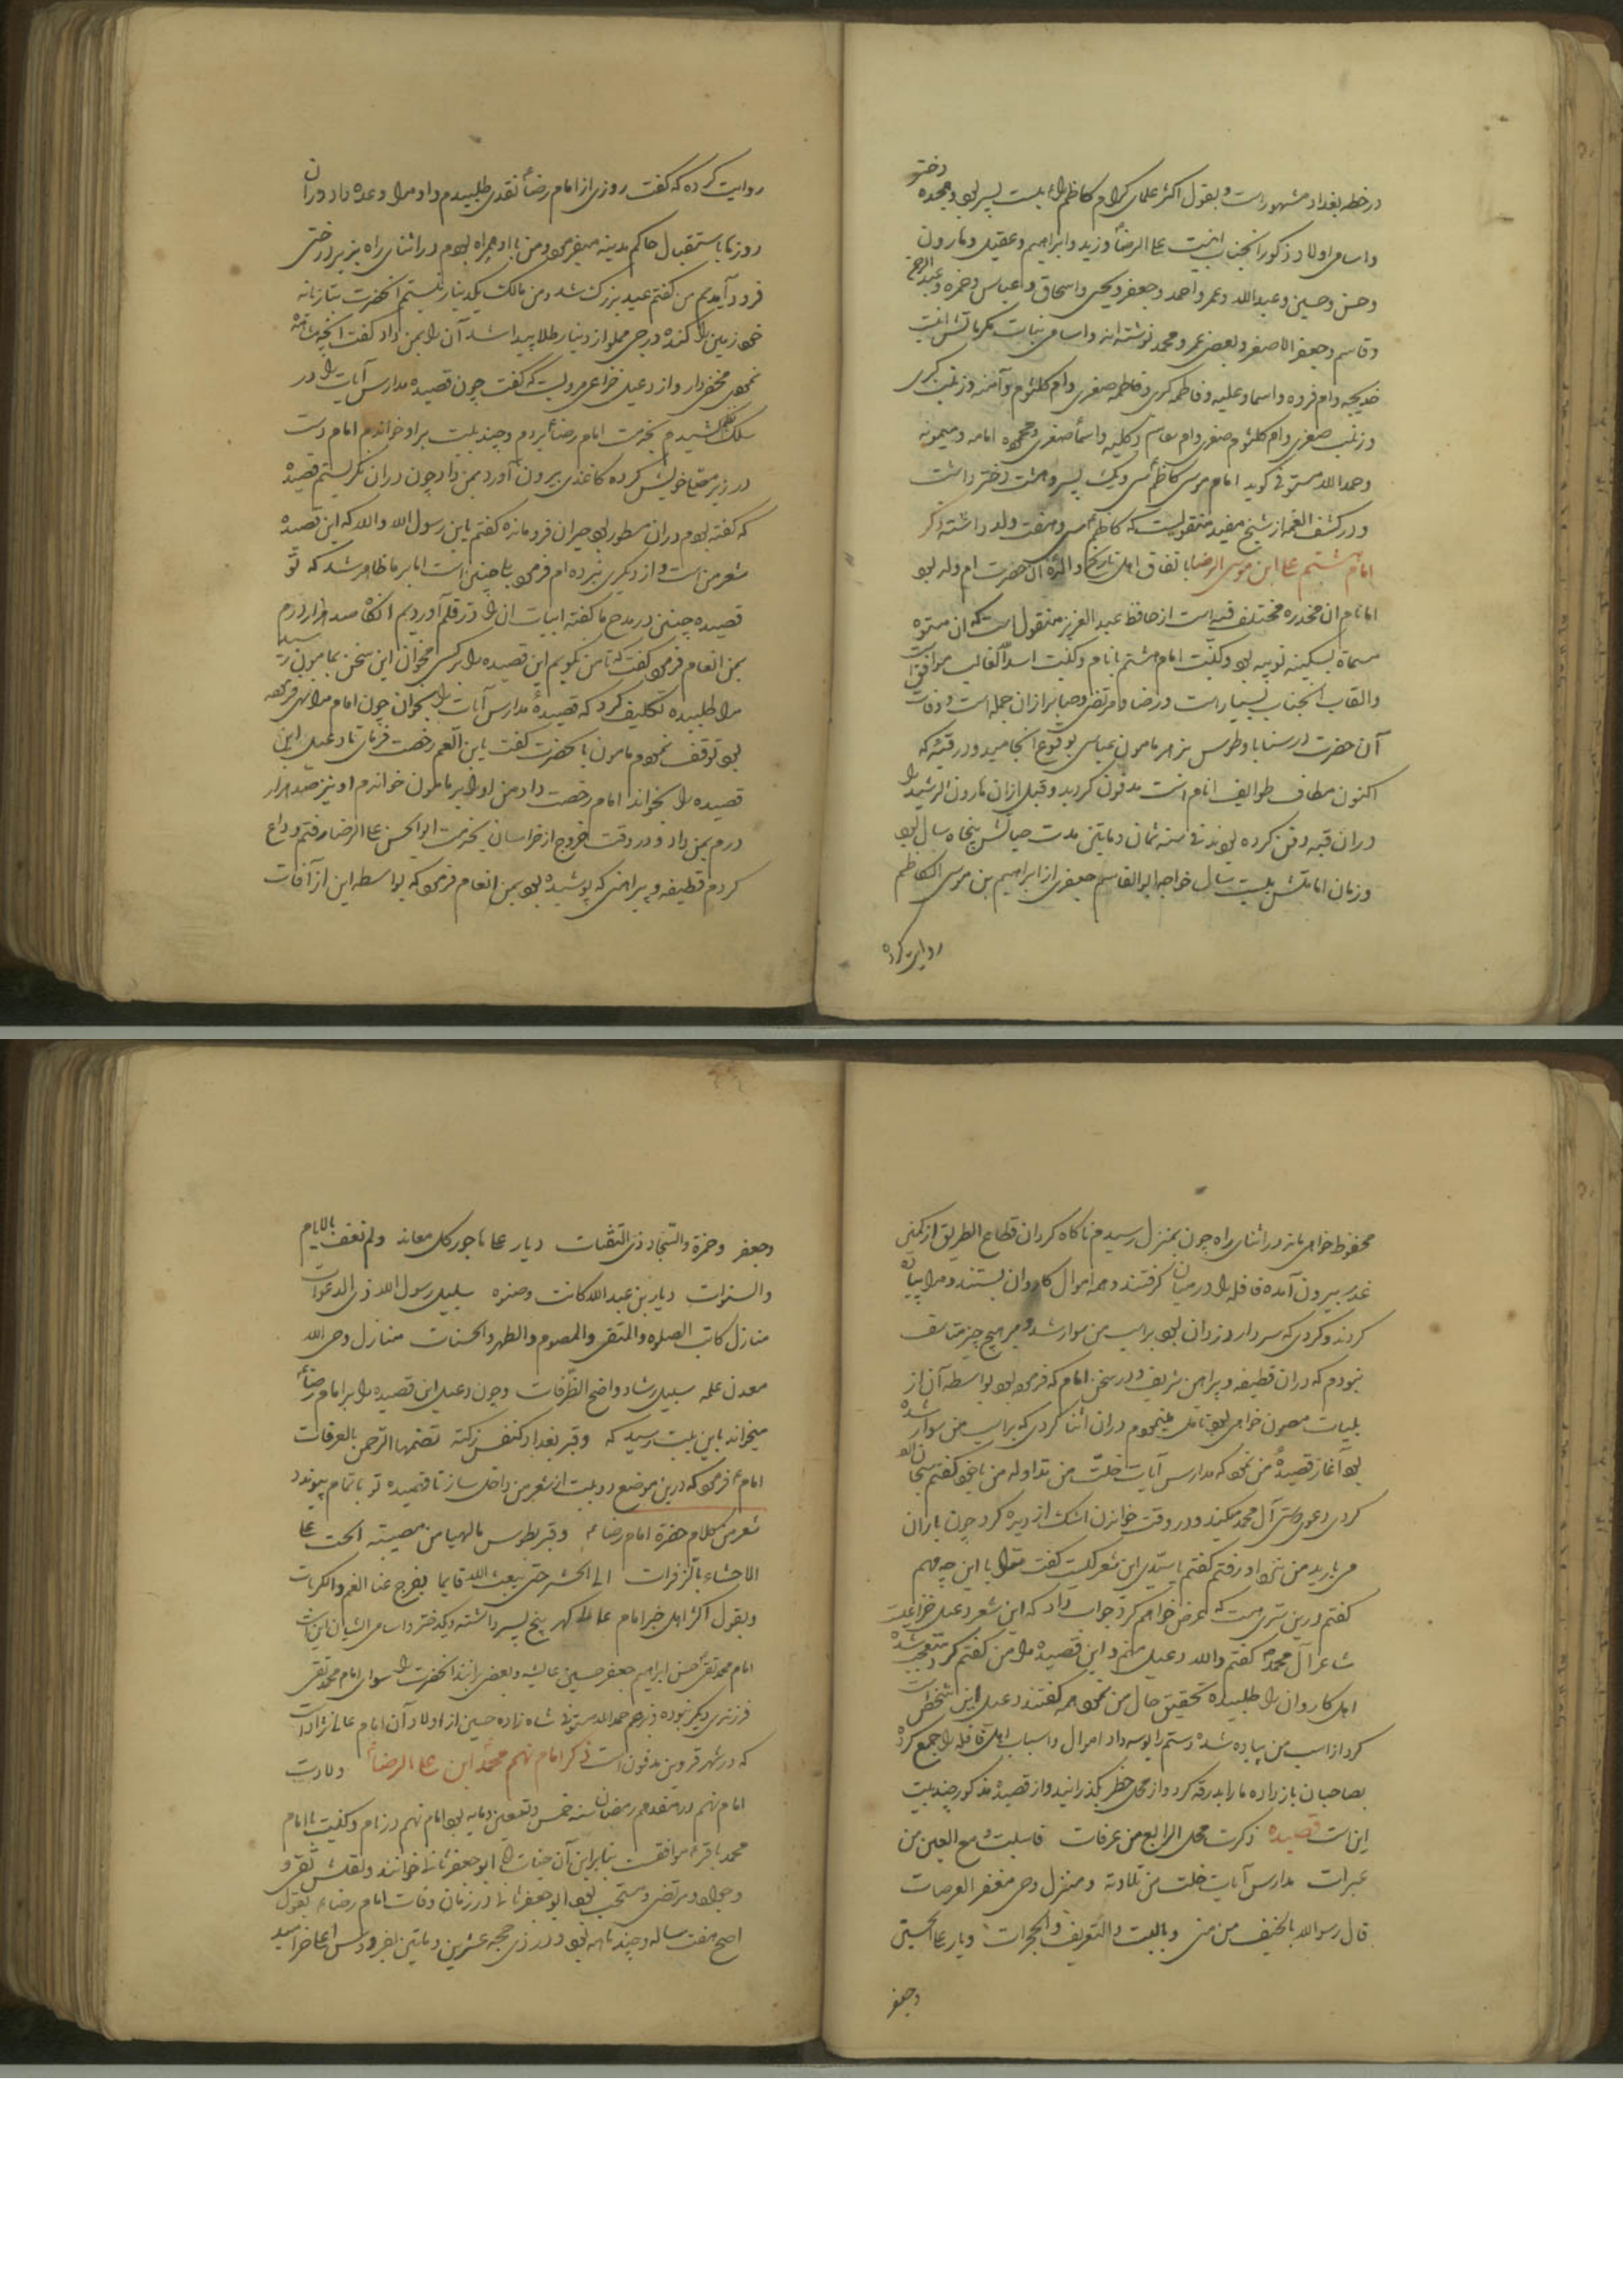 در خطه بغداد مشهور است و بقول اکثر علمای کرام کاظم را بیست پسر بود و هجده دختر
و اسامی اولاد ذکور آنجناب اینست علی الرضا و زید و ابراهیم و عقیل و هارون
و حسن و حسین و عبدالله و عمر و احمد و جعفر و یحیی و اسحاق و عباس و حمزه و عبدالرحمن
و قاسم و جعفر الاصغر و بعضی عمر و محمد نوشته اند و اسامی بنات مکرماتش اینست
خدیجه و ام فروه و اسما و علیه و فاطمه کبری و فاطمه صغری و ام کلثوم و آمنه و زینب کبری
و زینب صغری و ام کلثوم صغری و ام قاسم و کلیه و اسماء صغری و محموده امامه و میمونه
و حمدالله مستوفی گوید امام موسی کاظم سی و یک پسر و هشت دختر داشت
و در کشف الغمه از شیخ مفید منقولست که کاظم سی و هفت ولد داشته ذکر
امام هشتم علی ابن موسی الرضا باتفاق اهل تاریخ والده آن حضرت ام ولد بود
اما نام آن مخدره مختلف فیه است از حافظ عبدالعزیز منقول است که آن ستوده
مسماة بسکینه نوبیه بود و کنیت امام هشتم با نام و کنیت اسدالله الغالب موافق است
و القاب آنجناب بسیار است و رضا و مرتضی و صابر از آن جمله است و وفات
آن حضرت در سناباد طوس بزهر مامون عباسی بوقوع انجامید و در قبه که
اکنون مطاف طوایف انام است مدفون گردید و قبل از آن هارون الرشید را
در آن قبه دفن کرده بودند فی سنه ثمان و مایتین مدت حیاتش پنجاه سال بود
و زمان امامتش بیست سال خواجه ابوالقاسم جعفری از ابراهیم بن موسی الکاظم
روایت کرده
روایت کرده که گفت روزی از امام رضا نقدی طلبیدم و او مرا وعده داد در آن
روزها باستقبال حاکم مدینه میفرمود و من با او همراه بودم در اثنای راه بزیر درختی
فرود آمدیم من گفتم عید بزرگ شد و من مالک یکدینار نیستم آنحضرت بتازیانه
خود زمین را کنده درجی مملو از دینار طلا پیدا شد آن را بمن داد گفت آنچه مشاهده
نمودی مخفی دار و از دعبل خزاعی مرویست که گفت چون قصیده مدارس آیات را در
سلک نظم کشیدم بخدمت امام رضا بردم و چند بیت بر او خواندم امام دست
در زیر مصلای خویش کرده کاغذی بیرون آورد بمن داد چون در آن نگریستم قصیده
که گفته بودم در آن مسطور بود حیران فرو مانده گفتم یابن رسول الله والله که این قصیده
شعر من است و از دیگری نبرده ام فرمود بلی چنین است اما بر ما ظاهر شد که تو
قصیده چنین در مدح ما گفته ابیات آن را در قلم آوردیم آنگاه صد هزار درم
بمن انعام فرمود گفت که تا من نگویم این قصیده را بر کسی مخوان این سخن بمامون رسید
مرا طلبیده تکلیف کرد که قصیده مدارس آیات را بخوان چون امام مرا نهی فرموده
بود توقف نمودم مامون بآنحضرت گفت یابن العم رخصت فرمای تا دعبل این
قصیده را بخواند امام رخصت داد من او را بر مامون خواندم او نیز صد هزار
درم بمن داد و در وقت خروج از خراسان بخدمت ابوالحسن علی الرضا رفتم وداع
کردم قطیفه و پیراهنی که پوشیده بود بمن انعام فرمود که بواسطه این از آفات
محفوظ خواهی ماند در اثنای راه چون بمنزل رسیدم ناگاه کردان قطاع الطریق از کمین
غدر بیرون آمده قافله را در میان گرفتند و همه اموال کاروان بستند و مرا پیاده
کردند و کردی که سردار دزدان بود بر اسب من سوار شد و بر هیچ چیز متاسف
نبودم که در آن قطیفه و پیراهن شریف و در سخن امام که فرموده بود بواسطه آن از
بلیات مصون خواهی بود تامل مینمودم در آن اثنا کردی که بر اسب من سوار شده
بود آغاز قصیده من نمود که مدارس آیات خلت من تلاوة من با خود گفتم سبحان الله
کردی دعوی دوستی آل محمد میکند و در وقت خواندن اشک از دیده کرد چون باران
می بارید من نزد او رفتم گفتم یا سیدی این شعر کیست گفت ترا با این چه مهم
گفتم درین سری هست که عرض خواهم کرد جواب داد که این شعر دعبل خزاعیست
شاعر آل محمد گفتم والله دعبل منم و این قصیده را من گفتم کرد متعجب شده
اهل کاروان را طلبیده تحقیق حال من نمود همه گفتند دعبل این شخص است
کرد از اسب من پیاده شده دستم را بوسه داد اموال و اسباب اهل قافله را جمع کرده
بصاحبان باز داده ما را بدرقه کرد و از محل خطر بگذرانید و از قصیده مذکور چند بیت
این است قصیده ذکرت محل الربع من عرفات فاسلبت دمع العین من
عبرات مدارس آیات خلت من تلاوته و منزل وحی مقفر العرصات
قال رسول الله بالخیف من منی و بالبیت والتعریف والجمرات دیار علی الحسین
وجعفر
وجعفر وحمزة والسجاد ذی الثفنات دیار عفاها جور کل معاند ولم تعف بالایام
والسنوات دیار بن عبدالله کانت وصنوه سلیل رسول الله ذی الدعوات
منازل کانت الصلوه والتقی والصوم والطهر والحسنات منازل وحی الله
معدن علمه سبیل رشاد واضح الطرقات و چون دعبل این قصیده را بر امام رضا
میخواند باین بیت رسید که وقبر ببغداد لنفس زکیة تضمنها الرحمن بالغرفات
امام فرمود که درین موضع دو بیت از شعر من داخل ساز تا قصیده تو باتمام پیوندد
شعر من کلام حضرة امام رضا وقبر بطوس یالها من مصیبته الحت علی
الاحشاء بالزفرات الی الحشر حتی یبعث الله قایما یفرج عنا الغم والکربات
و بقول اکثر اهل خبر امام عالی گهر پنج پسر داشته و یکدختر و اسامی ایشان این است
امام محمد تقی حسن ابراهیم جعفر حسین عایشه و بعضی برانند آنحضرت را سوای امام محمد تقی
فرزندی دیگر نبوده و بزعم حمدالله مستوفی شاه زاده حسین از اولاد آن امام عالی نژاد است
که در شهر قزوین مدفون است ذکر امام نهم محمد ابن علی الرضا ولادت
امام نهم در هفدهم رمضان سنه خمس و تسعین و مایه بود امام نهم در نام و کنیت با امام
محمد باقر موافقست بنابراین آن جناب را ابوجعفر ثانی خوانند و لقبش تقی و
وجواد و مرتضی و منتجب بود ابوجعفر ثانی در زمان وفات امام رضا بقول
اصح هفت ساله و چند ماهه بود و در ذی حجه عشرین و مایتین بفردوس اعلی خرامید